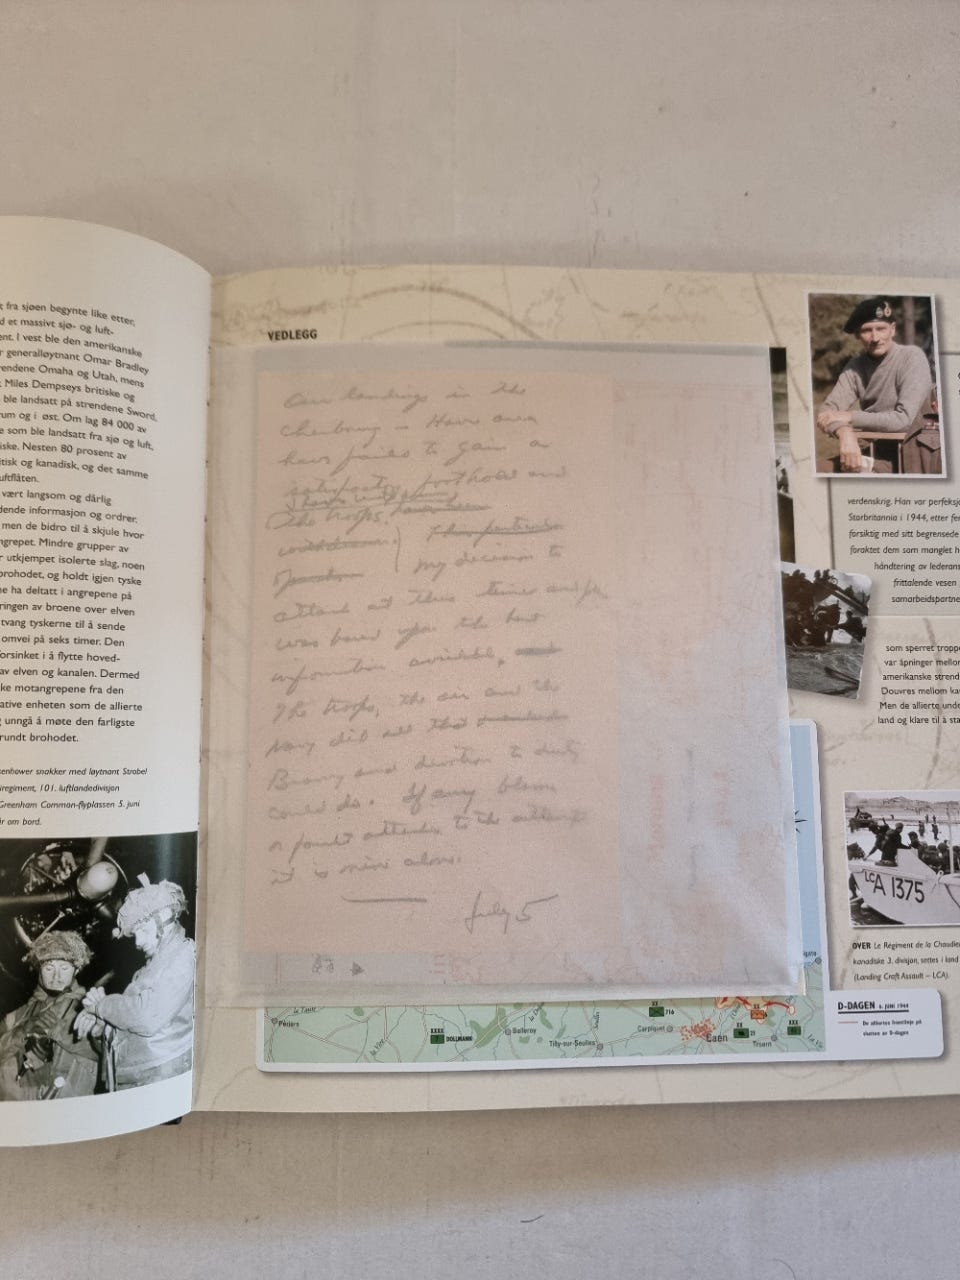 fra sjøen begynte like etter,
d et massivt sjø- og luft-
ent. I vest ble den amerikanske
r generalløytnant Omar Bradley
endene Omaha og Utah, mens
Miles Dempseys britiske og
ble landsatt på strendene Sword,
um og i øst. Om lag 84 000 av
e som ble landsatt fra sjø og luft,
iske. Nesten 80 prosent av
itisk og kanadisk, og det samme
uftflåten.
vært langsom og dårlig
dende informasjon og ordrer,
men de bidro til å skjule hvor
ngrepet. Mindre grupper av
r utkjempet isolerte slag, noen
brohodet, og holdt igjen tyske
ne ha deltatt i angrepene på
ringen av broene over elven
tvang tyskerne til å sende
omvei på seks timer. Den
forsinket i å flytte hoved-
av elven og kanalen. Dermed
ke motangrepene fra den
ative enheten som de allierte
unngå å møte den farligste
rundt brohodet.
enhower snakker med løytnant Strobel
regiment, 101. luftlandedivisjon
Greenham Common-flyplassen 5. juni
r om bord.
VEDLEGG
Our landings in the
Cherbourg - Havre area
have failed to gain a
satisfactory foothold and
I have withdrawn
the troops.
My decision to
attack at this time and
was based upon the best
information available,
The troops, the air and the
Navy did all that
Bravery and devotion to duty
could do. If any blame
or fault attaches to the attempt
it is mine alone.
July 5
verdenskrig. Han var perfeksj
Storbritannia i 1944, etter fe
forsiktig med sitt begrensede
foraktet dem som manglet h
håndtering av lederans
frittalende vesen
samarbeidspartne
som sperret troppe
var åpninger mellom
amerikanske strend
Douvres mellom ka
Men de allierte unde
land og klare til å sta
LCA 1375
OVER Le Régiment de la Chaudière
kanadiske 3. divisjon, settes i land
(Landing Craft Assault – LCA).
D-DAGEN 6. JUNI 1944
De alliertes frontlinje på
slutten av D-dagen
Périers
XXXX
7 DOLLMANN
Balleroy
Tilly-sur-Seulles
Carpiquet
716
Caen
21
Troarn